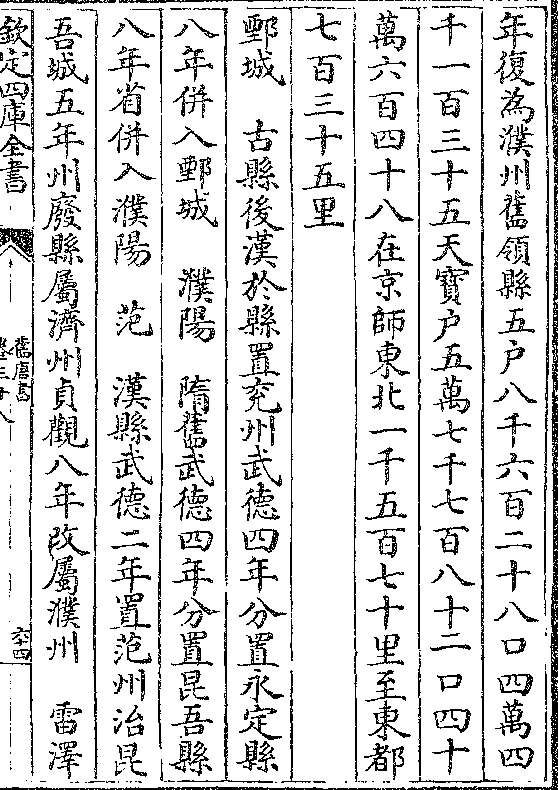 年復為濮州舊領縣五户八千六百二十八口四萬四
千一百三十五天寶户五萬七千七百八十二口四十
萬六百四十八在京師東北一千五百七十里至東都
七百三十五里
鄄城　古縣後漢於縣置兖州武德四年分置永定縣
八年併入鄄城　濮陽　隋舊武德四年分置昆吾縣
八年省併入濮陽　范　漢縣武德二年置范州治昆
吾城五年州廢縣屬濟州貞觀八年改屬濮州　雷澤
欽定四庫全書
舊唐書
卷三十八
六十四